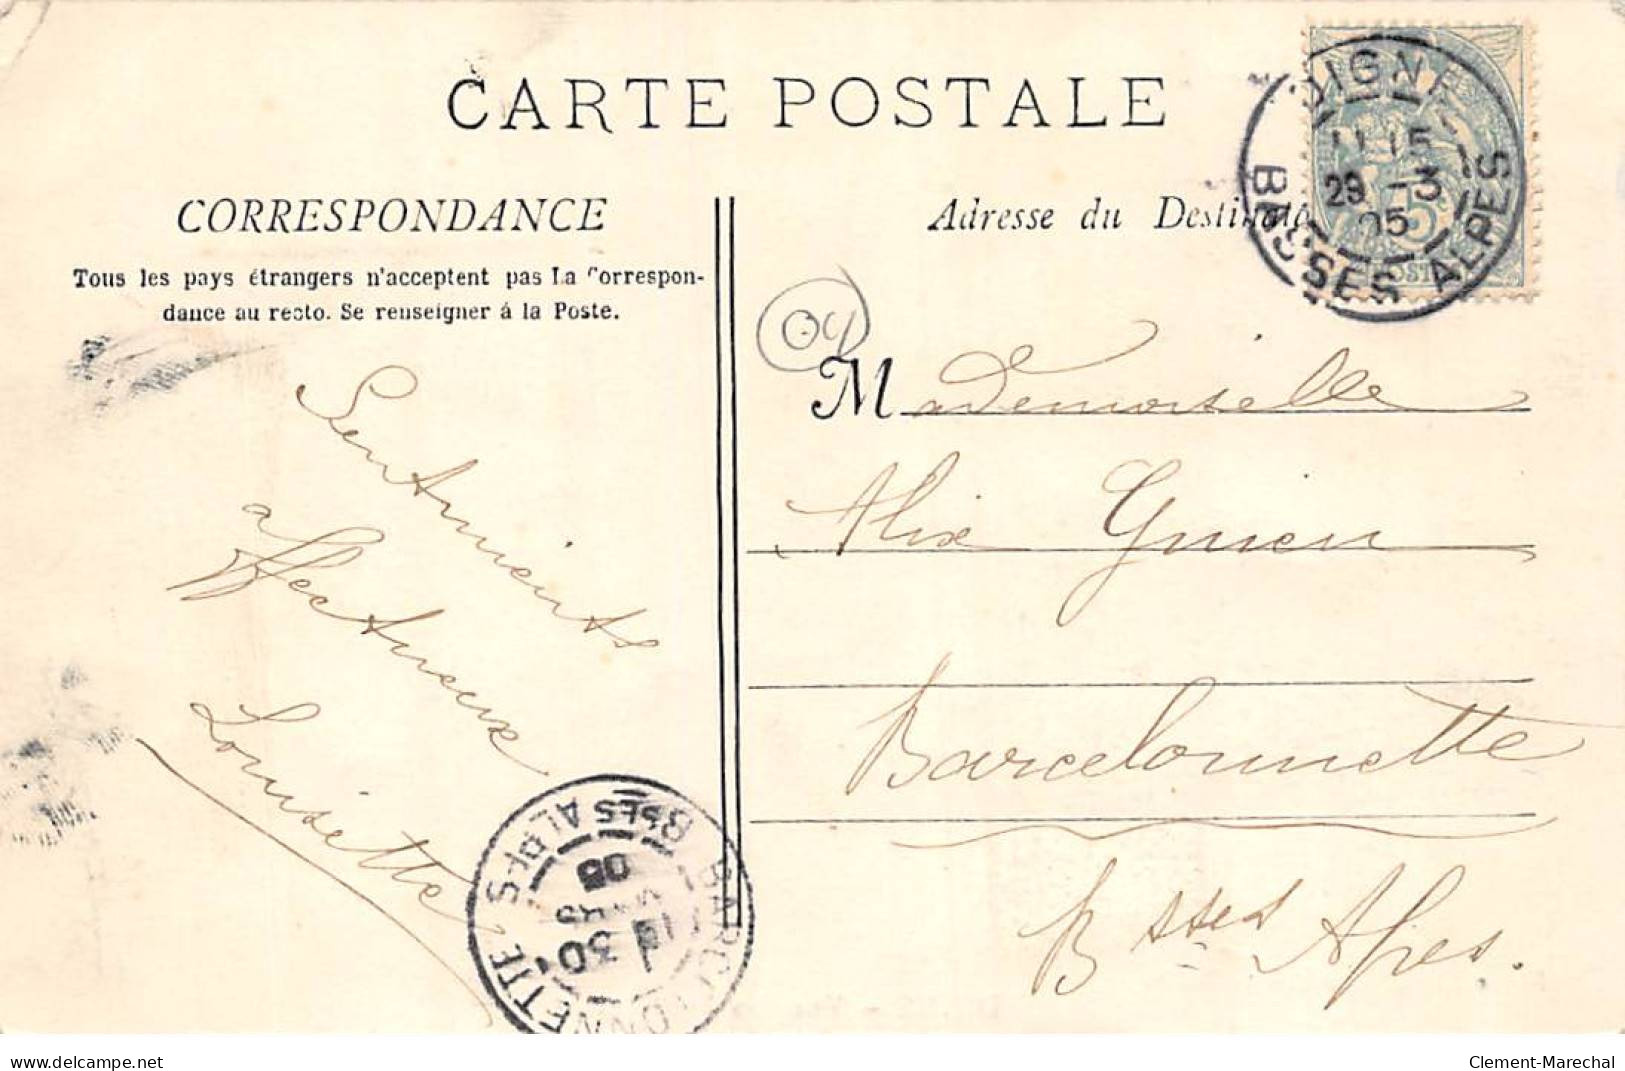 CARTE POSTALE
CORRESPONDANCE
Tous les pays étrangers n'acceptent pas La Correspon-
dance au recto. Se renseigner á la Poste.
Sentiments
affectueux
Louisette
Adresse du Destinata
04
Mademoiselle
Alix
Barcelonnette
Bsses Alpes.
DIGNE
11 15
29 -3
05
BASSES ALPES
5
POST
BARCELONNETTE
30
MARS
05
Bses ALPES
delcampe.net
Clement-Marechal